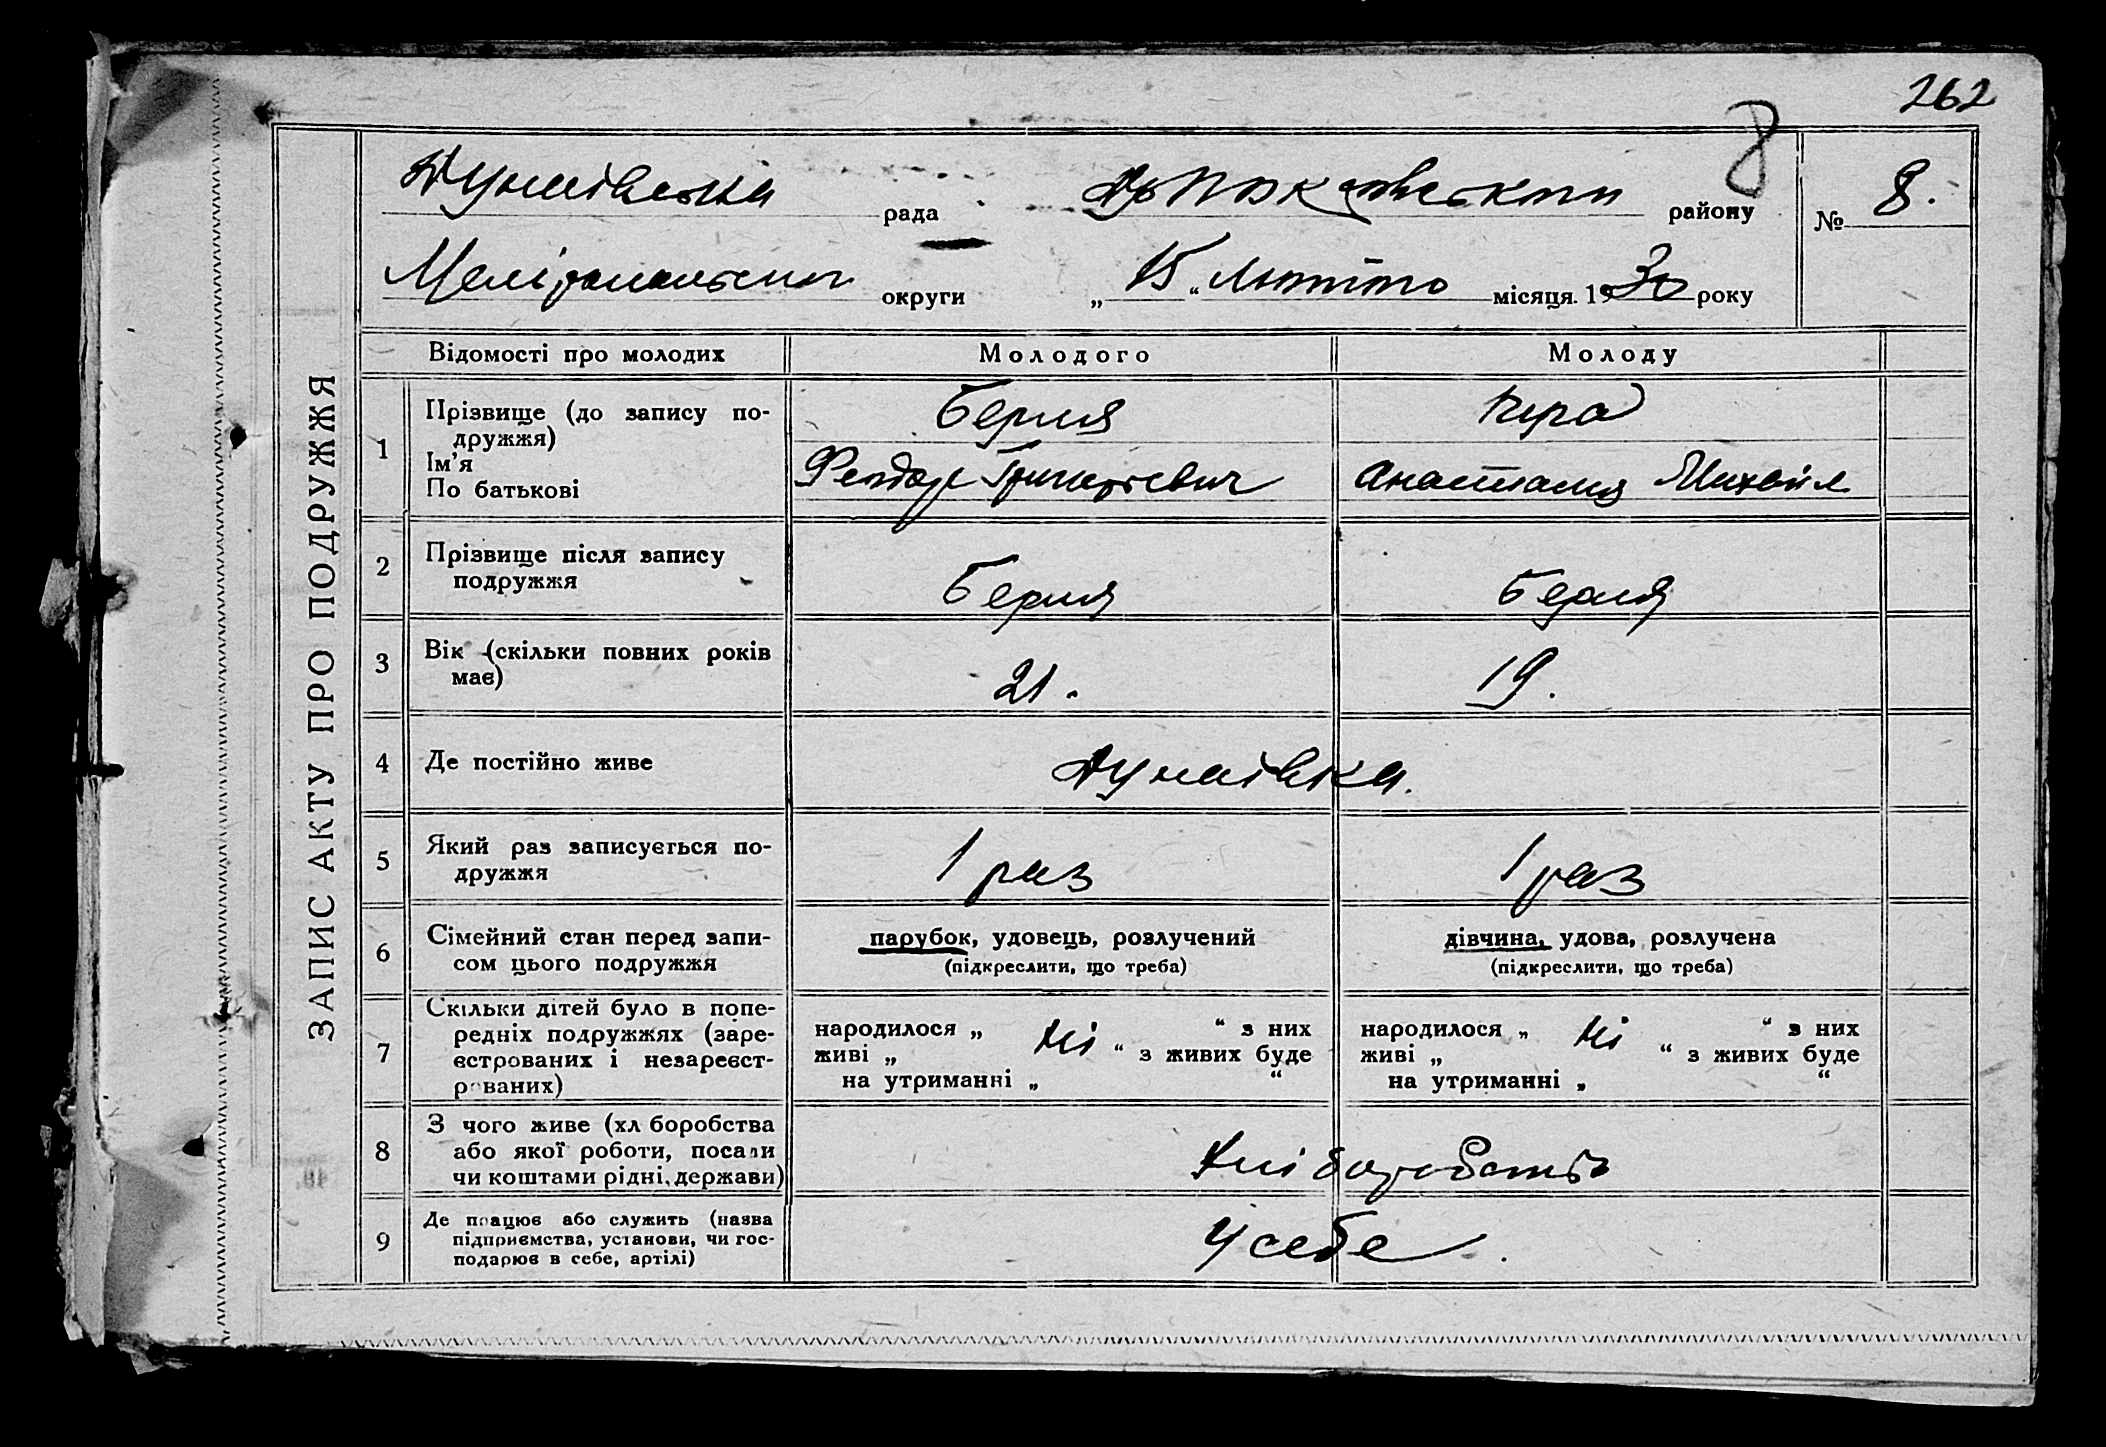 262
8
Дунаївська рада
району
№ 8.
Мелітопольської округи „15“ Лютого місяця 1930 року
ЗАПИС АКТУ ПРО ПОДРУЖЖЯ
Відомості про молодих
Молодого
Молоду
1
Прізвище (до запису по-
дружжя)
Ім’я
По батькові
Берия
Федор Григорьевич
Анастасия Михайл
2
Прізвище після запису
подружжя
Берия
Берия
3
Вік (скільки повних років
має)
21.
19.
4
Де постійно живе
Дунаівка.
5
Який раз записується по-
дружжя
1 раз
1 раз
6
Сімейний стан перед запи-
сом цього подружжя
парубок, удовець, розлучений
(підкреслити, що треба)
дівчина, удова, розлучена
(підкреслити, що треба)
7
Скільки дітей було в попе-
редніх подружжях (заре-
єстрованих і незареєст-
рованих)
народилося „ ні “ з них
живі „ “ з живих буде
на утриманні „ “
народилося „ ні “ з них
живі „ “ з живих буде
на утриманні „ “
8
З чого живе (хл боробства
або якої роботи, посади
чи коштами рідні, держави)
Хліборобство
9
Де працює або служить (назва
підприємства, установи, чи гос-
подарює в себе, артілі)
У себе.